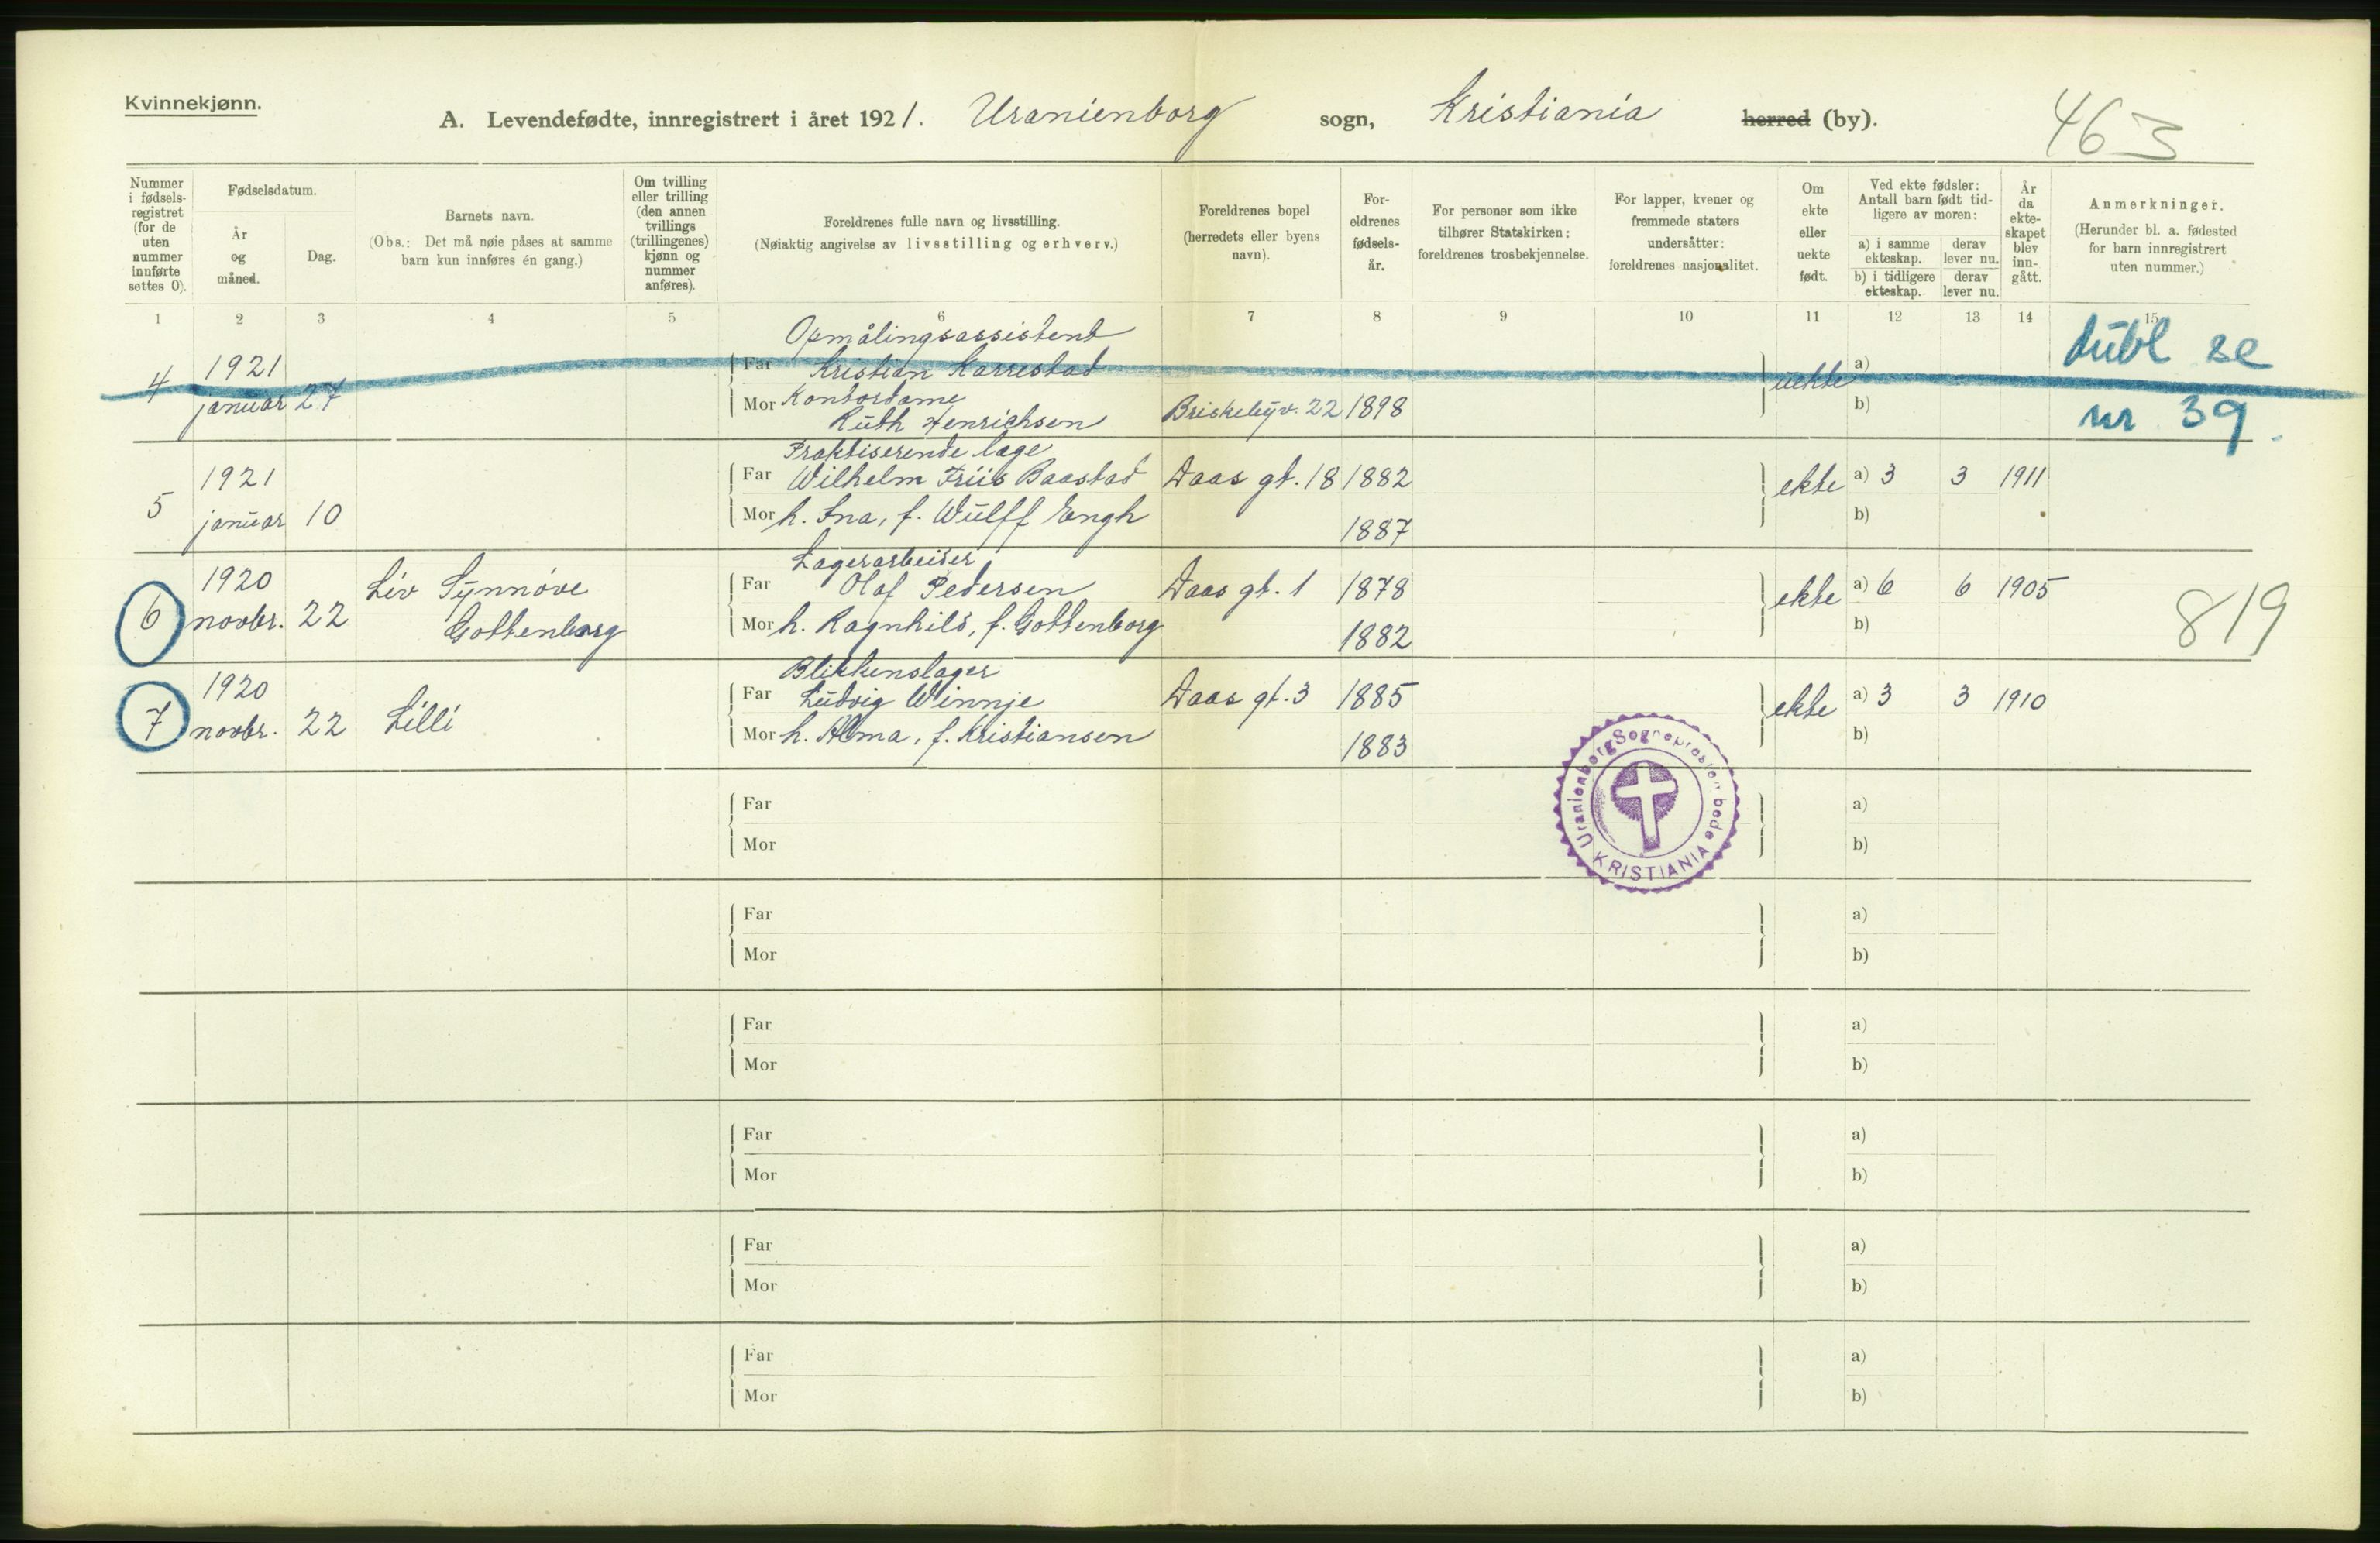 Kvinnekjønn.
A. Levendefødte, innregistrert i året 1921. Uranienborg sogn, Kristiania herred (by).
463
Nummer i fødsels-registret (for de uten nummer innførte settes 0).
Fødselsdatum.
År og måned.
Dag.
Barnets navn.
(Obs.: Det må nøie påses at samme barn kun innføres én gang.)
Om tvilling eller trilling (den annen tvillings (trillingenes) kjønn og nummer anføres).
Foreldrenes fulle navn og livsstilling.
(Nøiaktig angivelse av livsstilling og erhverv.)
Foreldrenes bopel (herredets eller byens navn).
For-eldrenes fødsels-år.
For personer som ikke tilhører Statskirken: foreldrenes trosbekjennelse.
For lapper, kvener og fremmede staters undersåtter: foreldrenes nasjonalitet.
Om ekte eller uekte født.
Ved ekte fødsler: Antall barn født tid-ligere av moren:
a) i samme ekteskap.
derav lever nu.
b) i tidligere ekteskap.
derav lever nu.
År da ekte-skapet blev inn-gått.
Anmerkninger.
(Herunder bl. a. fødested for barn innregistrert uten nummer.)
1 2 3 4 5 6 7 8 9 10 11 12 13 14 15
Opmålingsassistent
4 1921 Far Kristian Karrestad uekte a) dubl se
januar 27 Mor Kontordame
Ruth Henrichsen Briskebyv. 22 1898 b) nr 39.
Praktiserende læge
5 1921 Far Wilhelm Friis Baastad Daas gt. 18 1882 ekte a) 3 3 1911
januar 10 Mor h. Ina, f. Wulff Engh 1887 b)
Lagerarbeider
6 1920 Liv Synnøve Far Olaf Pedersen Daas gt. 1 1878 ekte a) 6 6 1905
novbr. 22 Gottenborg Mor h. Ragnhild, f. Gottenborg 1882 b) 819
Blikkenslager
7 1920 Far Ludvig Winnje Daas gt. 3 1885 ekte a) 3 3 1910
novbr. 22 Lilli Mor h. Alma, f. Kristiansen 1883 b)
Uranienborg Sogneprestembede
KRISTIANIA
Far a)
Mor b)
Far a)
Mor b)
Far a)
Mor b)
Far a)
Mor b)
Far a)
Mor b)
Far a)
Mor b)